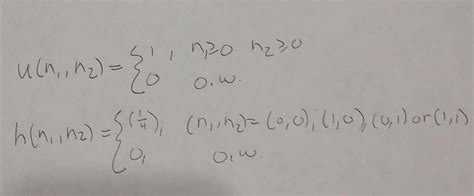 u(n₁,n₂) = { 1, n₁≥0 n₂≥0
0 o.w.
h(n₁,n₂) = { (1/4), (n₁,n₂)=(0,0),(1,0),(0,1) or (1,1)
0, o.w.